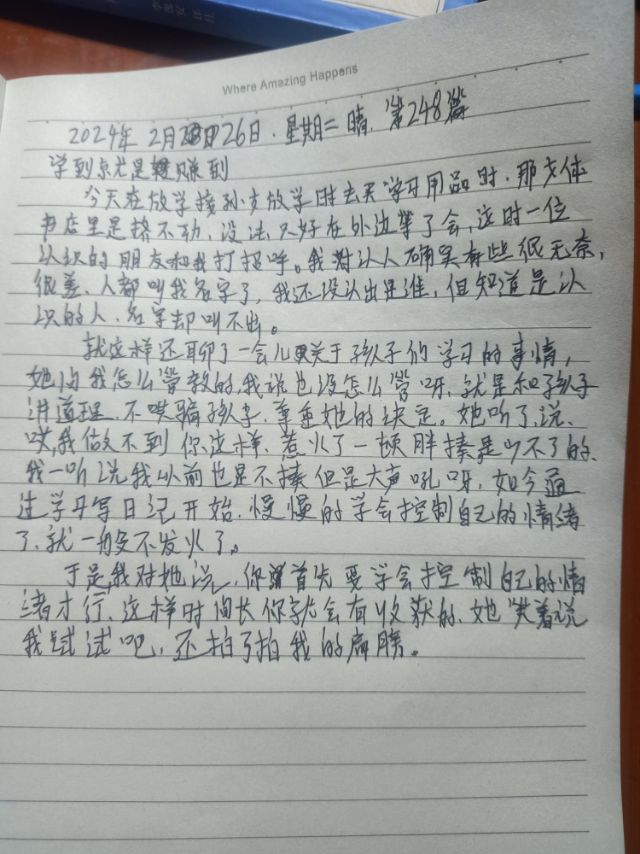 Where Amazing Happens
2024年2月26日.星期二 晴.第248篇
学到点尤是赚到
今天在放学接孙女放学时去买学习用品时.那文体
书店里是挤不动,没法,只好在外边等了会,这时一位
认识的朋友和我打招呼。我对认人确实有些很无奈,
很差、人都叫我名字了,我还没认出是谁,但知道是认
识的人、名字却叫不出。
就这样还聊了一会儿关于孩子们学习的事情,
她问我怎么管教的,我说也没怎么管呀、就是和孩子
讲道理、不哄骗孩子、尊重她的决定。她听了、说、
哎,我做不到你这样、惹火了一顿胖揍是少不了的、
我一听说我以前也是不揍但是大声吼呀、如今通
过学习写日记开始、慢慢的学会控制自己的情绪
了、就一般不发火了。
于是,我对她说、你首先要学会控制自己的情
绪才行、这样时间长你就会有收获的、她笑着说
我试试吧、还拍了拍我的肩膀。